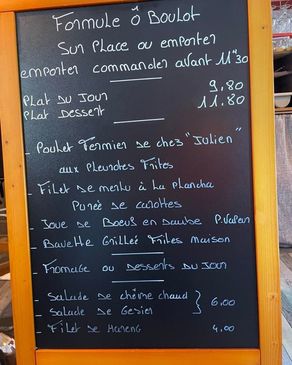 Formule Ô Boulot
Sur Place ou emporter
emporter commander avant 11"30
Plat du Jour 9,80
Plat Dessert 11.80
- Poulet Fermier de chez "Julien"
aux Pleurotes Frites
- Filet de merlu à la Plancha
Purée de carottes
- Joue de Boeuf en Daube P.Vapeur
- Bavette Grillée Frites maison
- Fromage ou Desserts du Jour
- Salade de chèvre chaud
- Salade de Gesier } 6.00
- Filet de Hareng 4.00